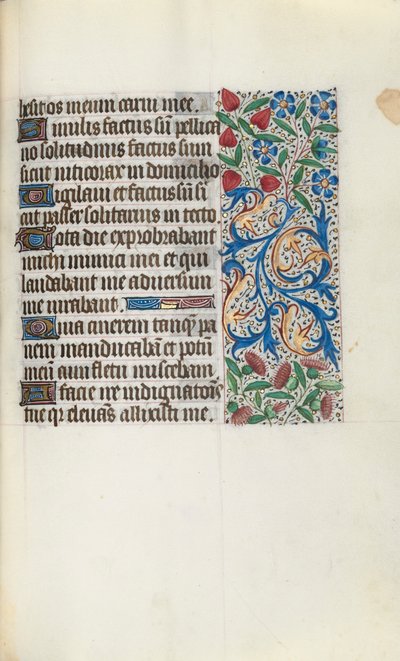 hesit os meum carni mee.
Similis factus sū pellica
no solitudinis factus sum
sicut niticorax in domicilio
Uigilaui et factus sū si
cut passer solitarius in tecto
Tota die exprobrabant
michi inimici mei et qui
laudabant me aduersum
me iurabant.
Quia cinerem tanq̄ pa
nem manducabā et potū
meū cum fletu miscebam
A facie ire indignatiōis
tue qr eleuās allixisti me